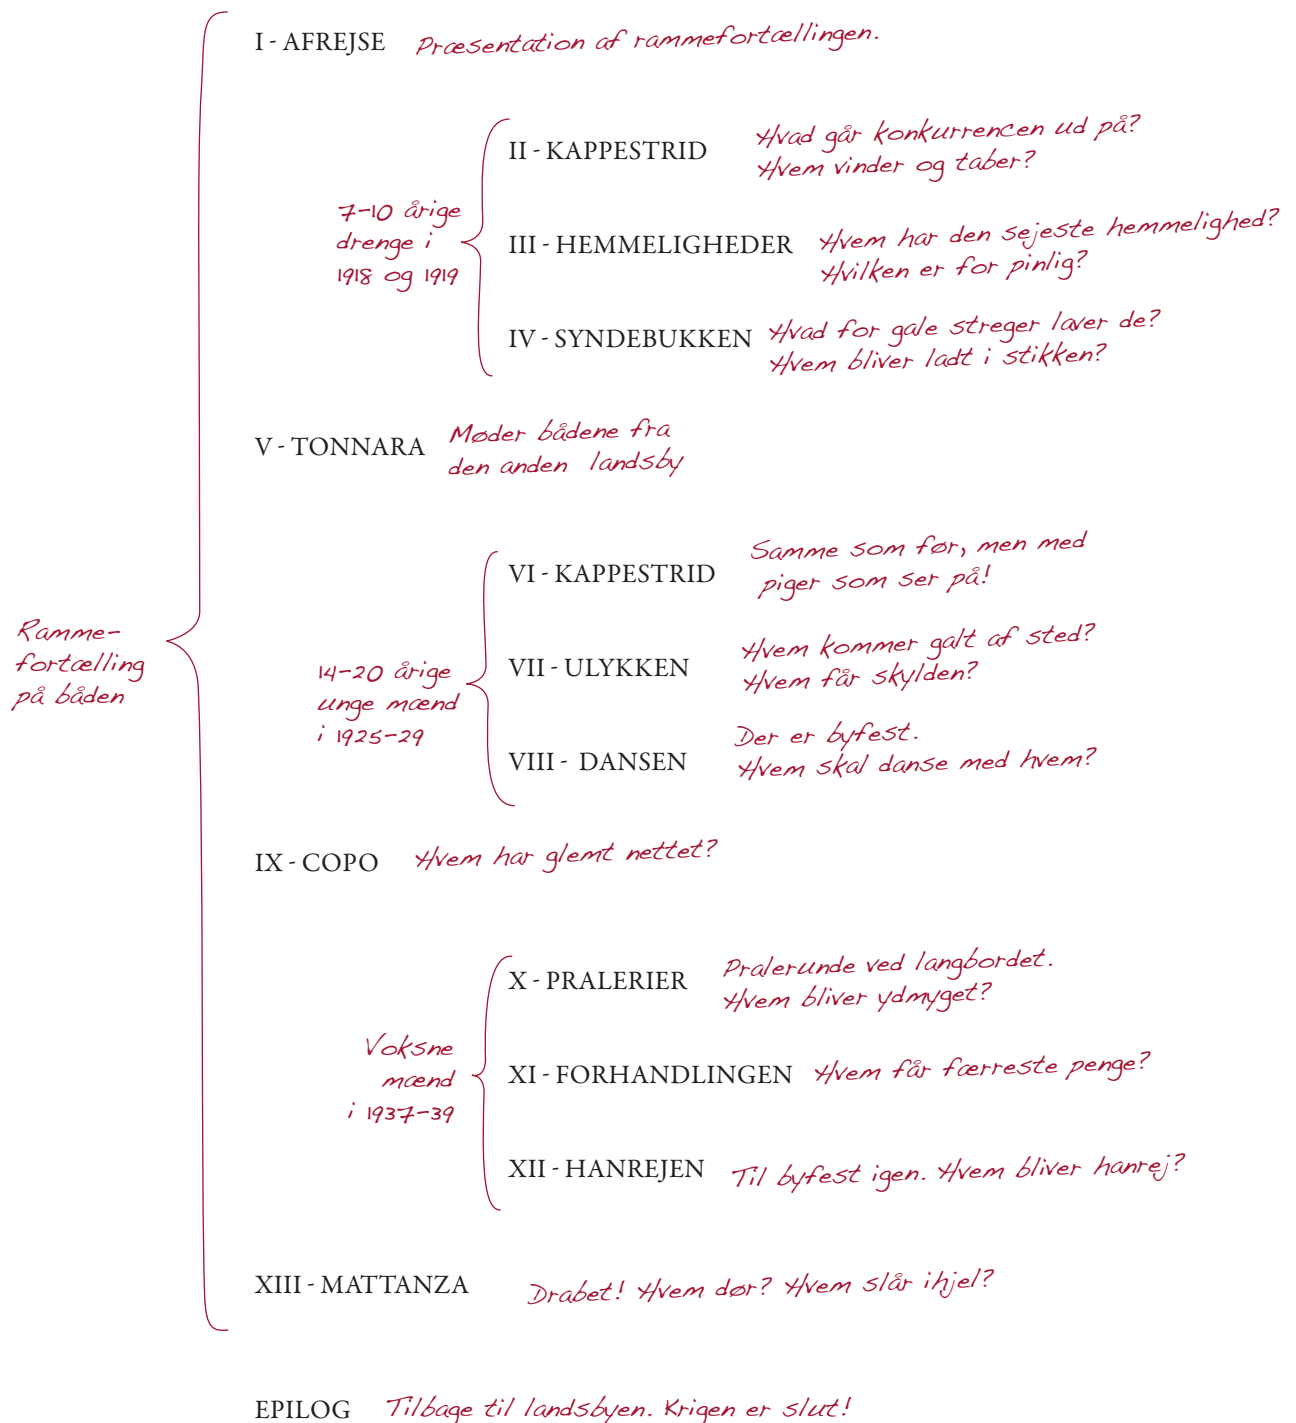 I - AFREJSE Præsentation af rammefortællingen.
7-10 årige
drenge i
1918 og 1919
II - KAPPESTRID
Hvad går konkurrencen ud på?
Hvem vinder og taber?
III - HEMMELIGHEDER
Hvem har den sejeste hemmelighed?
Hvilken er for pinlig?
IV - SYNDEBUKKEN
Hvad for gale streger laver de?
Hvem bliver ladt i stikken?
V - TONNARA
Møder bådene fra
den anden landsby
Ramme-
fortælling
på båden
14-20 årige
unge mænd
i 1925-29
VI - KAPPESTRID
Samme som før, men med
piger som ser på!
VII - ULYKKEN
Hvem kommer galt af sted?
Hvem får skylden?
VIII - DANSEN
Der er byfest.
Hvem skal danse med hvem?
IX - COPO Hvem har glemt nettet?
Voksne
mænd
i 1937-39
X - PRALERIER
Pralerunde ved langbordet.
Hvem bliver ydmyget?
XI - FORHANDLINGEN Hvem får færreste penge?
XII - HANREJEN Til byfest igen. Hvem bliver hanrej?
XIII - MATTANZA Drabet! Hvem dør? Hvem slår ihjel?
EPILOG Tilbage til landsbyen. Krigen er slut!